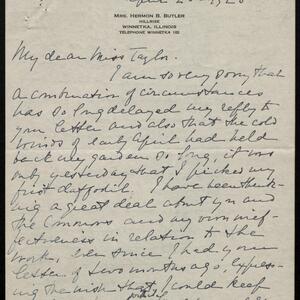 Mrs. Hermon B. Butler
Hillrise
Winnetka, Illinois
Telephone Winnetka 102
My dear Miss Taylor.
I am so very sorry that
a combination of circumstances
has so long delayed my reply to
your letter and also that the cold
winds of early April had held
back my garden so long, it was
only yesterday that I picked my
first daffodil. I have been think-
ing a great deal about you and
the Commons and my own inef-
fectiveness in relation to the
work, ever since I had your
letter of two months ago, express-
ing the wish that I could keep